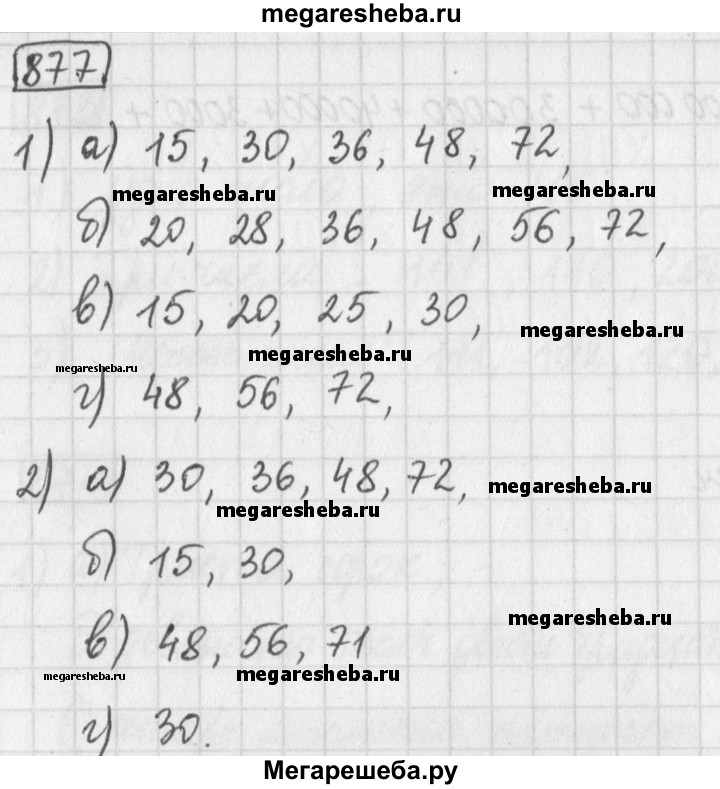 megaresheba.ru
877
1) а) 15, 30, 36, 48, 72,
megaresheba.ru megaresheba.ru
б) 20, 28, 36, 48, 56, 72,
в) 15, 20, 25, 30,
megaresheba.ru
megaresheba.ru
megaresheba.ru
г) 48, 56, 72,
2) а) 30, 36, 48, 72,
megaresheba.ru
megaresheba.ru
б) 15, 30,
megaresheba.ru
в) 48, 56, 71
megaresheba.ru megaresheba.ru
г) 30.
Мегарешеба.ру